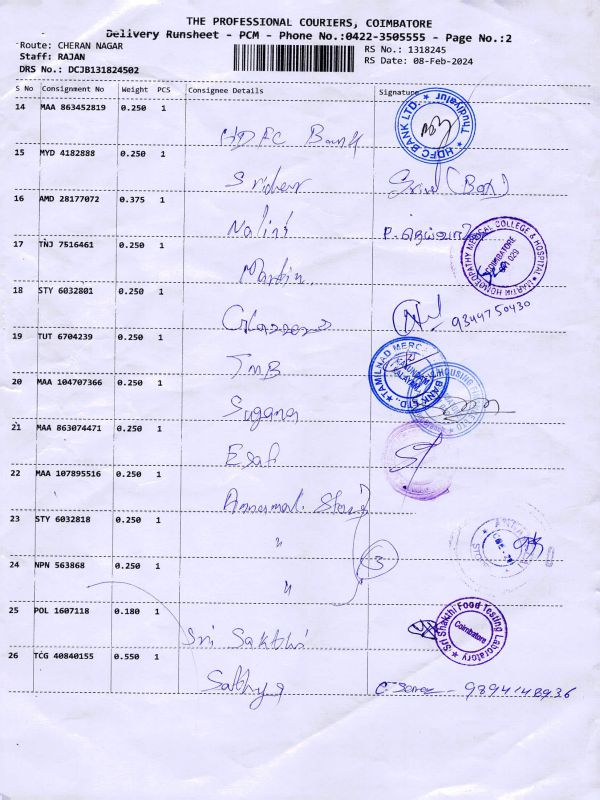 THE PROFESSIONAL COURIERS, COIMBATORE
Delivery Runsheet - PCM - Phone No.:0422-3505555 - Page No.:2
Route: CHERAN NAGAR
RS No.: 1318245
Staff: RAJAN
RS Date: 08-Feb-2024
DRS No.: DCJB131824502
S No Consignment No Weight PCS Consignee Details Signature
14 MAA 863452819 0.250 1 HDFC Bank HDFC BANK LTD. Thudiyalur
15 MYD 4182888 0.250 1 (Box)
16 AMD 28177072 0.375 1
17 TNJ 7516461 0.250 1 Martin MEDICAL COLLEGE & HOSPITAL COIMBATORE
18 STY 6032801 0.250 1 9344750430
19 TUT 6704239 0.250 1 TMB TAMILNAD BANK LTD.,
20 MAA 104707366 0.250 1 Sugana HOUSING
21 MAA 863074471 0.250 1 Esaf
22 MAA 107895516 0.250 1
23 STY 6032818 0.250 1 "
24 NPN 563868 0.250 1 " 3
25 POL 1607118 0.180 1 Sri Sakthi Sri Shakthi Food Testing Laboratory Coimbatore
26 TCG 40840155 0.550 1 Sathya 9894148936